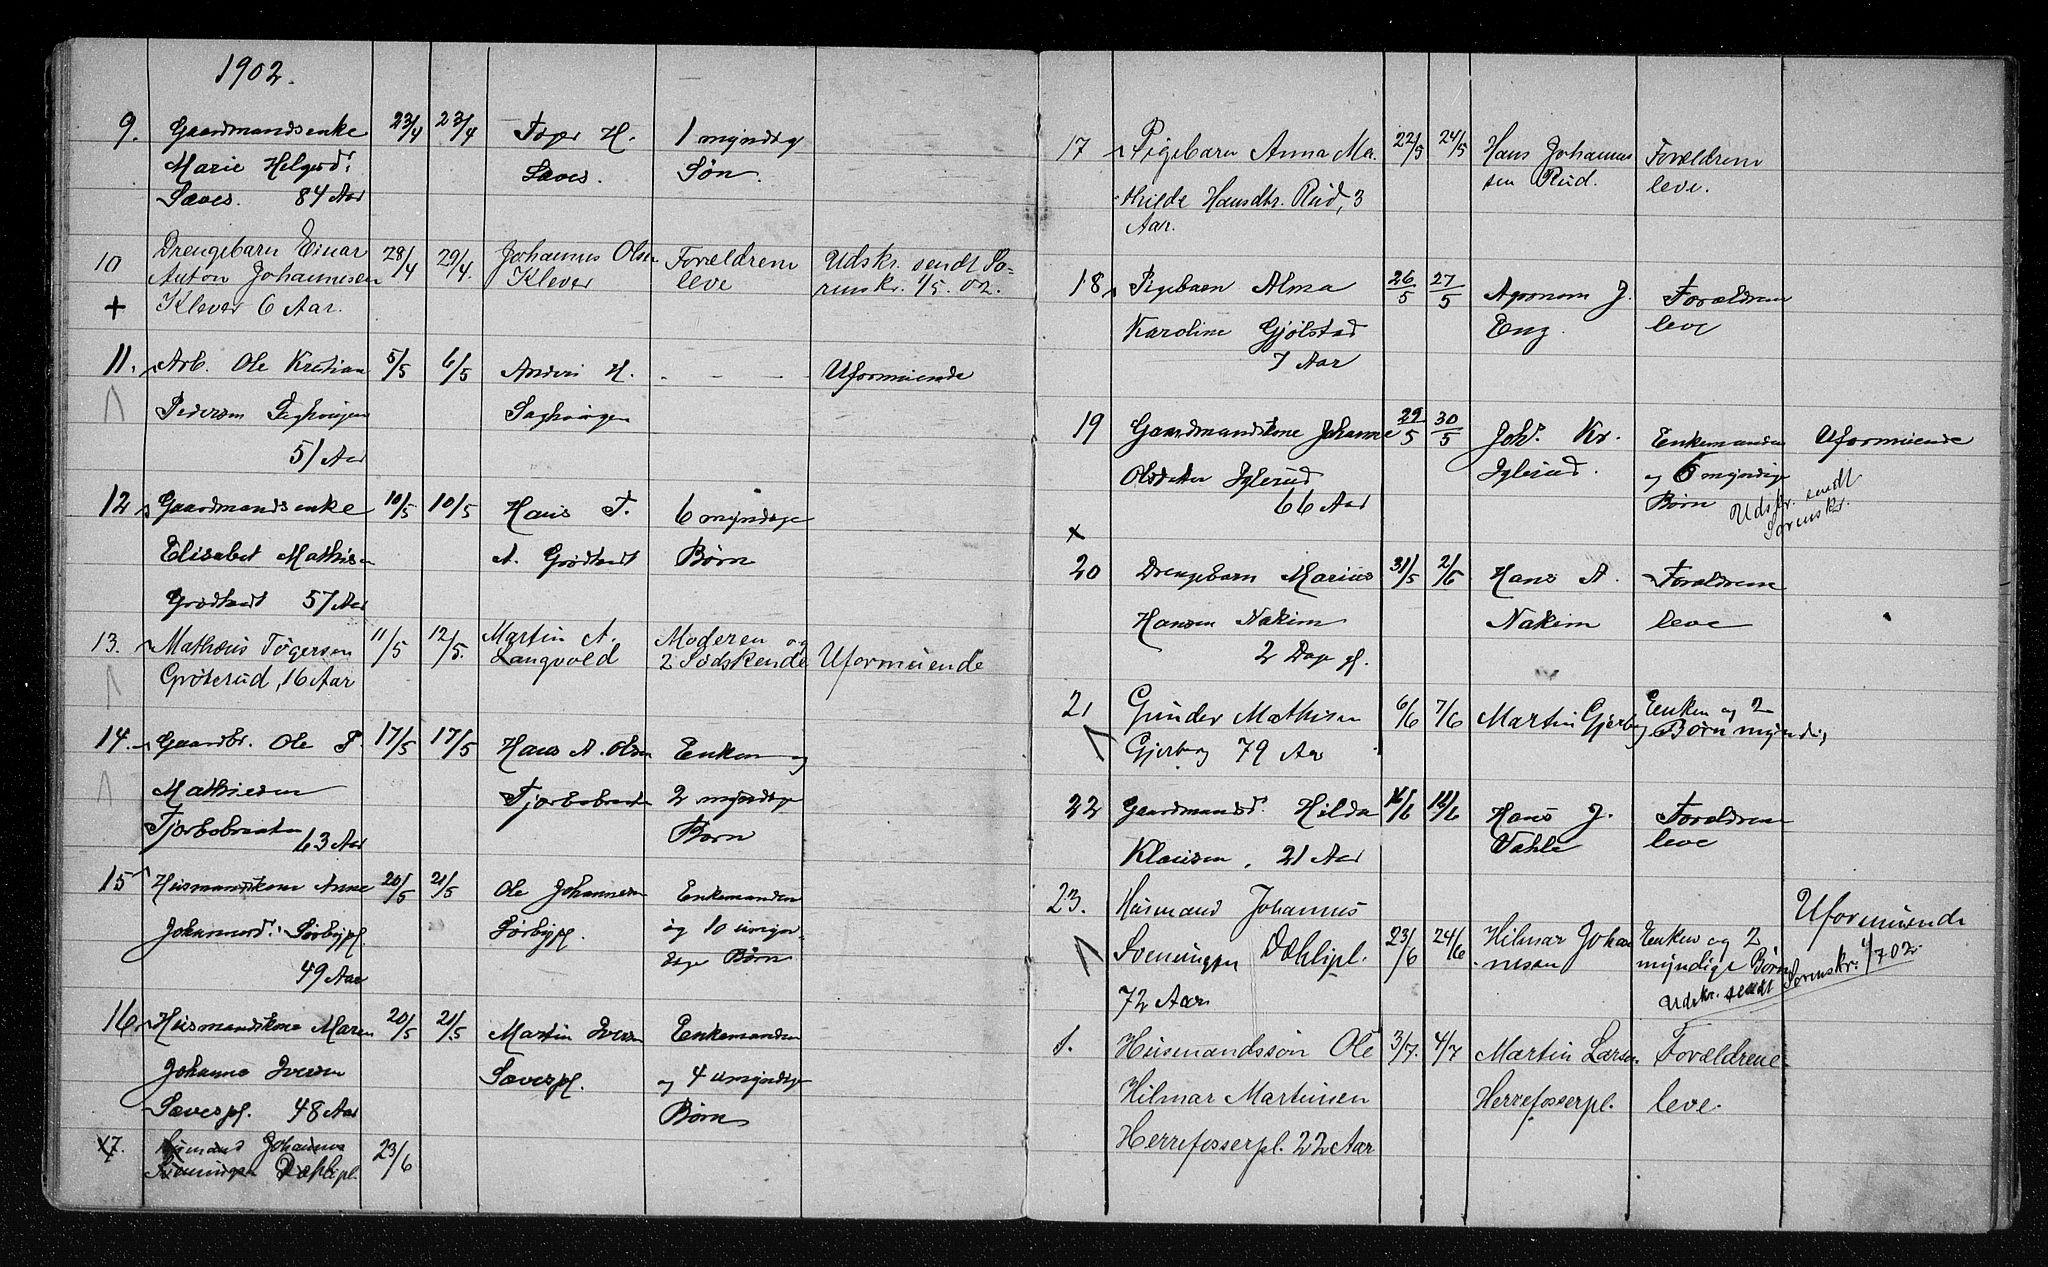 1902.
9. Gaardmandsenke 23/4 23/4 H. 1 myndig
Marie Helgesd. Sæves. Søn.
Sæves. 84 Aar
10 Drengebarn Einar 28/4 29/4. Johannes Olsen Forældrene Udskr. sendt So-
Anton Johannesen Klever leve renskr. 1/5. 02.
+ Klever 6 Aar.
11. Arb. Ole Kristian 5/5 6/5 Anders H. - - - Uformuende
Pedersen
51 Aar
12 Gaardmandsenke 10/5 10/5 Hans T. 6 myndige
Elisabet Mathisen A. Grødtvedt Børn
Grødtvedt 57 Aar
13. Mathæus Tøgersen 11/5 12/5. Martin A. Moderen og
Grøterud, 16 Aar Langvold 2 Sødskende Uformuende
14. Gaardbr. Ole P. 17/5 17/5 Hans A. Olsen Enken og
Mathiesen 2 myndige
63 Aar Børn
15 Husmandskone Anne 20/5 21/5 Ole Johannesen Enkemanden
Johannesd. Sørbypl. Sørbypl. og 10 umyn-
49 Aar dige Børn
16 Husmandskone Maren 20/5 21/5 Martin Iversen Enkemanden
Johanne Iversen Sævespl. og 4 umyndige
Sævespl. 48 Aar Børn
17. Husmand Johannes 23/6
Sveningsen Dæhlipl.
17 Pigebarn Anna Ma- 22/5 24/5 Hans Johannes Forældrene
thilde Hansdtr. Rud, 3 sen Rud. leve.
Aar.
18 Pigebarn Alma 26/5 27/5 Agronom J. Forældrene
Karoline Gjølstad Eng. leve
7 Aar
19 Gaardmandskone Johanne 29/5 30/5 Johs. Kr. Enkemanden Uformuende
Olsdatter Iglerud Iglerud. og 6 myndige
66 Aar Børn Udskr. sendt
Sorenskr.
x
20 Drengebarn Marius 31/5 2/6 Hans A. Forældrene
Hansen Nakim Nakim leve
2 Dage gl.
21 Gunder Mathisen 6/6 7/6 Martin Gjerberg Enken og 2
Gjerberg 79 Aar Børn myndig
22 Gaardmandsd. Hilda 16/6 18/6 Hans J. Forældrene
Klausen, 21 Aar leve
23. Husmand Johannes Uformuende
Sveningsen Dæhlipl. 23/6 24/6 Hilmar Johan- Enken og 2
nesen myndige Børn
72 Aar Udskr. sendt Sorenskr. 4/7 02.
1. Husmandssøn Ole 3/7. 4/7 Martin Larsen Forældrene
Hilmar Martinsen Herrefosserpl. leve.
Herrefosserpl. 22 Aar